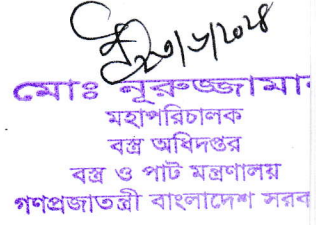 মোঃ নূরুজ্জামান
মহাপরিচালক
বস্ত্র অধিদপ্তর
বস্ত্র ও পাট মন্ত্রণালয়
গণপ্রজাতন্ত্রী বাংলাদেশ সরব